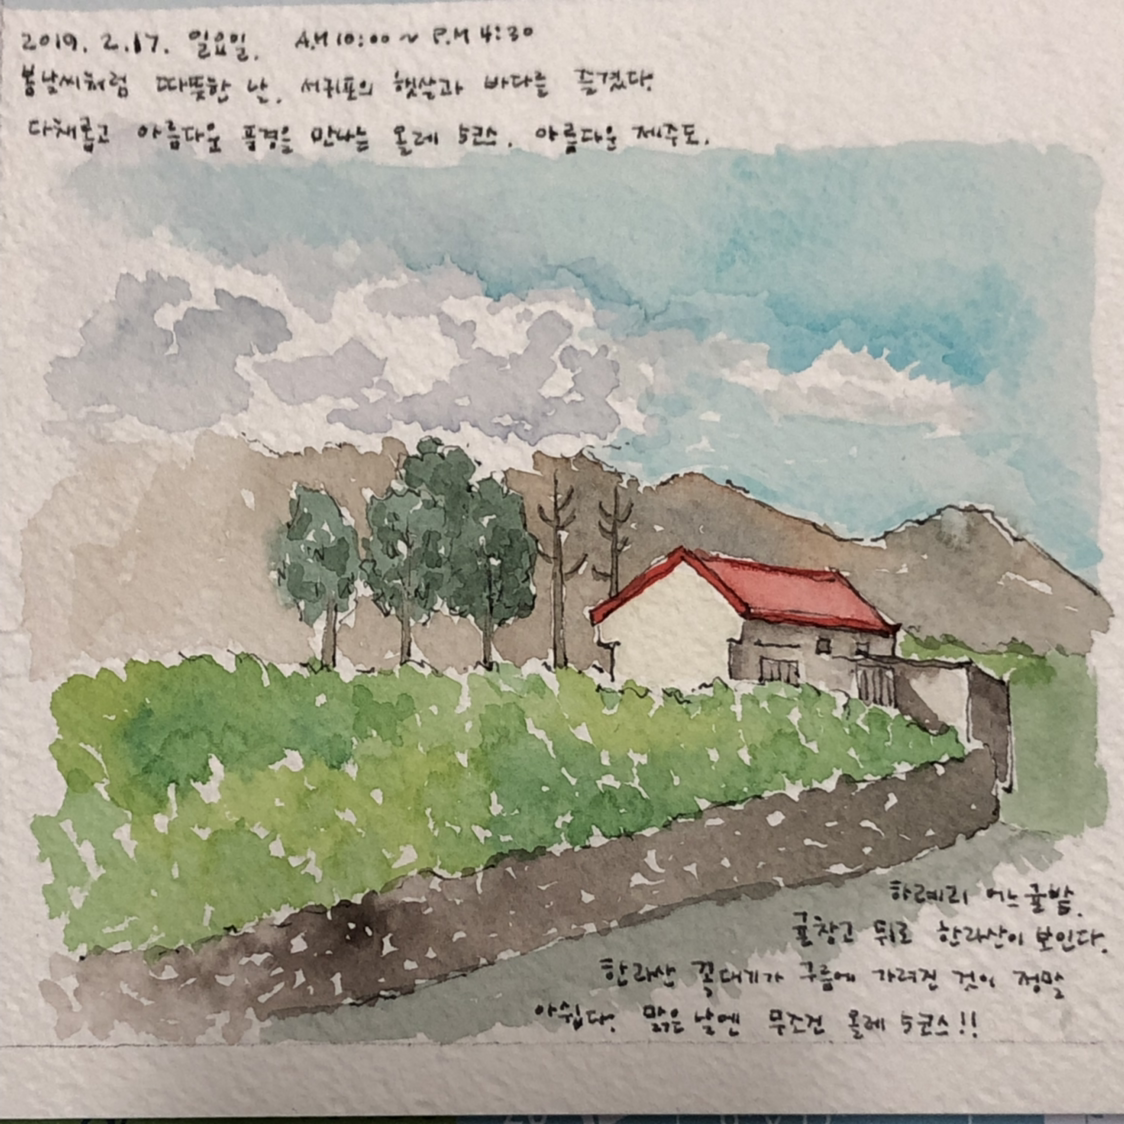 2019. 2.17. 일요일. A.M 10:00 ~ P.M 4:30
봄날씨처럼 따뜻한 날. 서귀포의 햇살과 바다를 즐겼다.
다채롭고 아름다운 풍경을 만나는 올레 5코스. 아름다운 제주도.
하례리 어느 귤밭.
귤창고 뒤로 한라산이 보인다.
한라산 꼭대기가 구름에 가려진 것이 정말
아쉽다. 맑은 날엔 무조건 올레 5코스!!